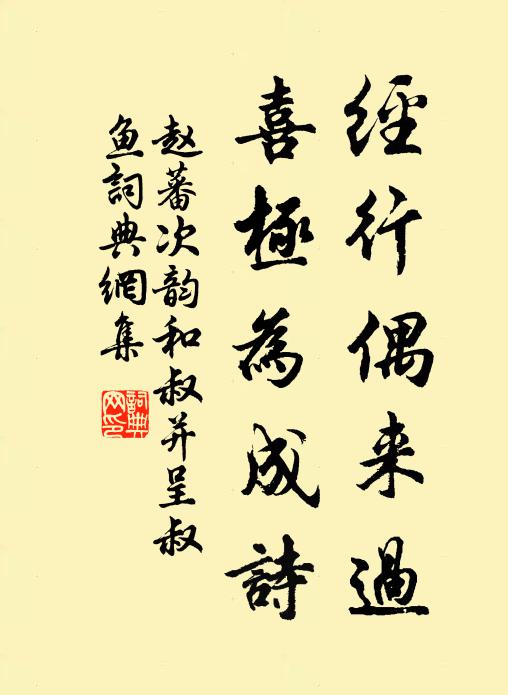 經行偶来過
喜極為成詩
赵蕃次韵和叔并呈叔
鱼詞典網集
詞典
网印